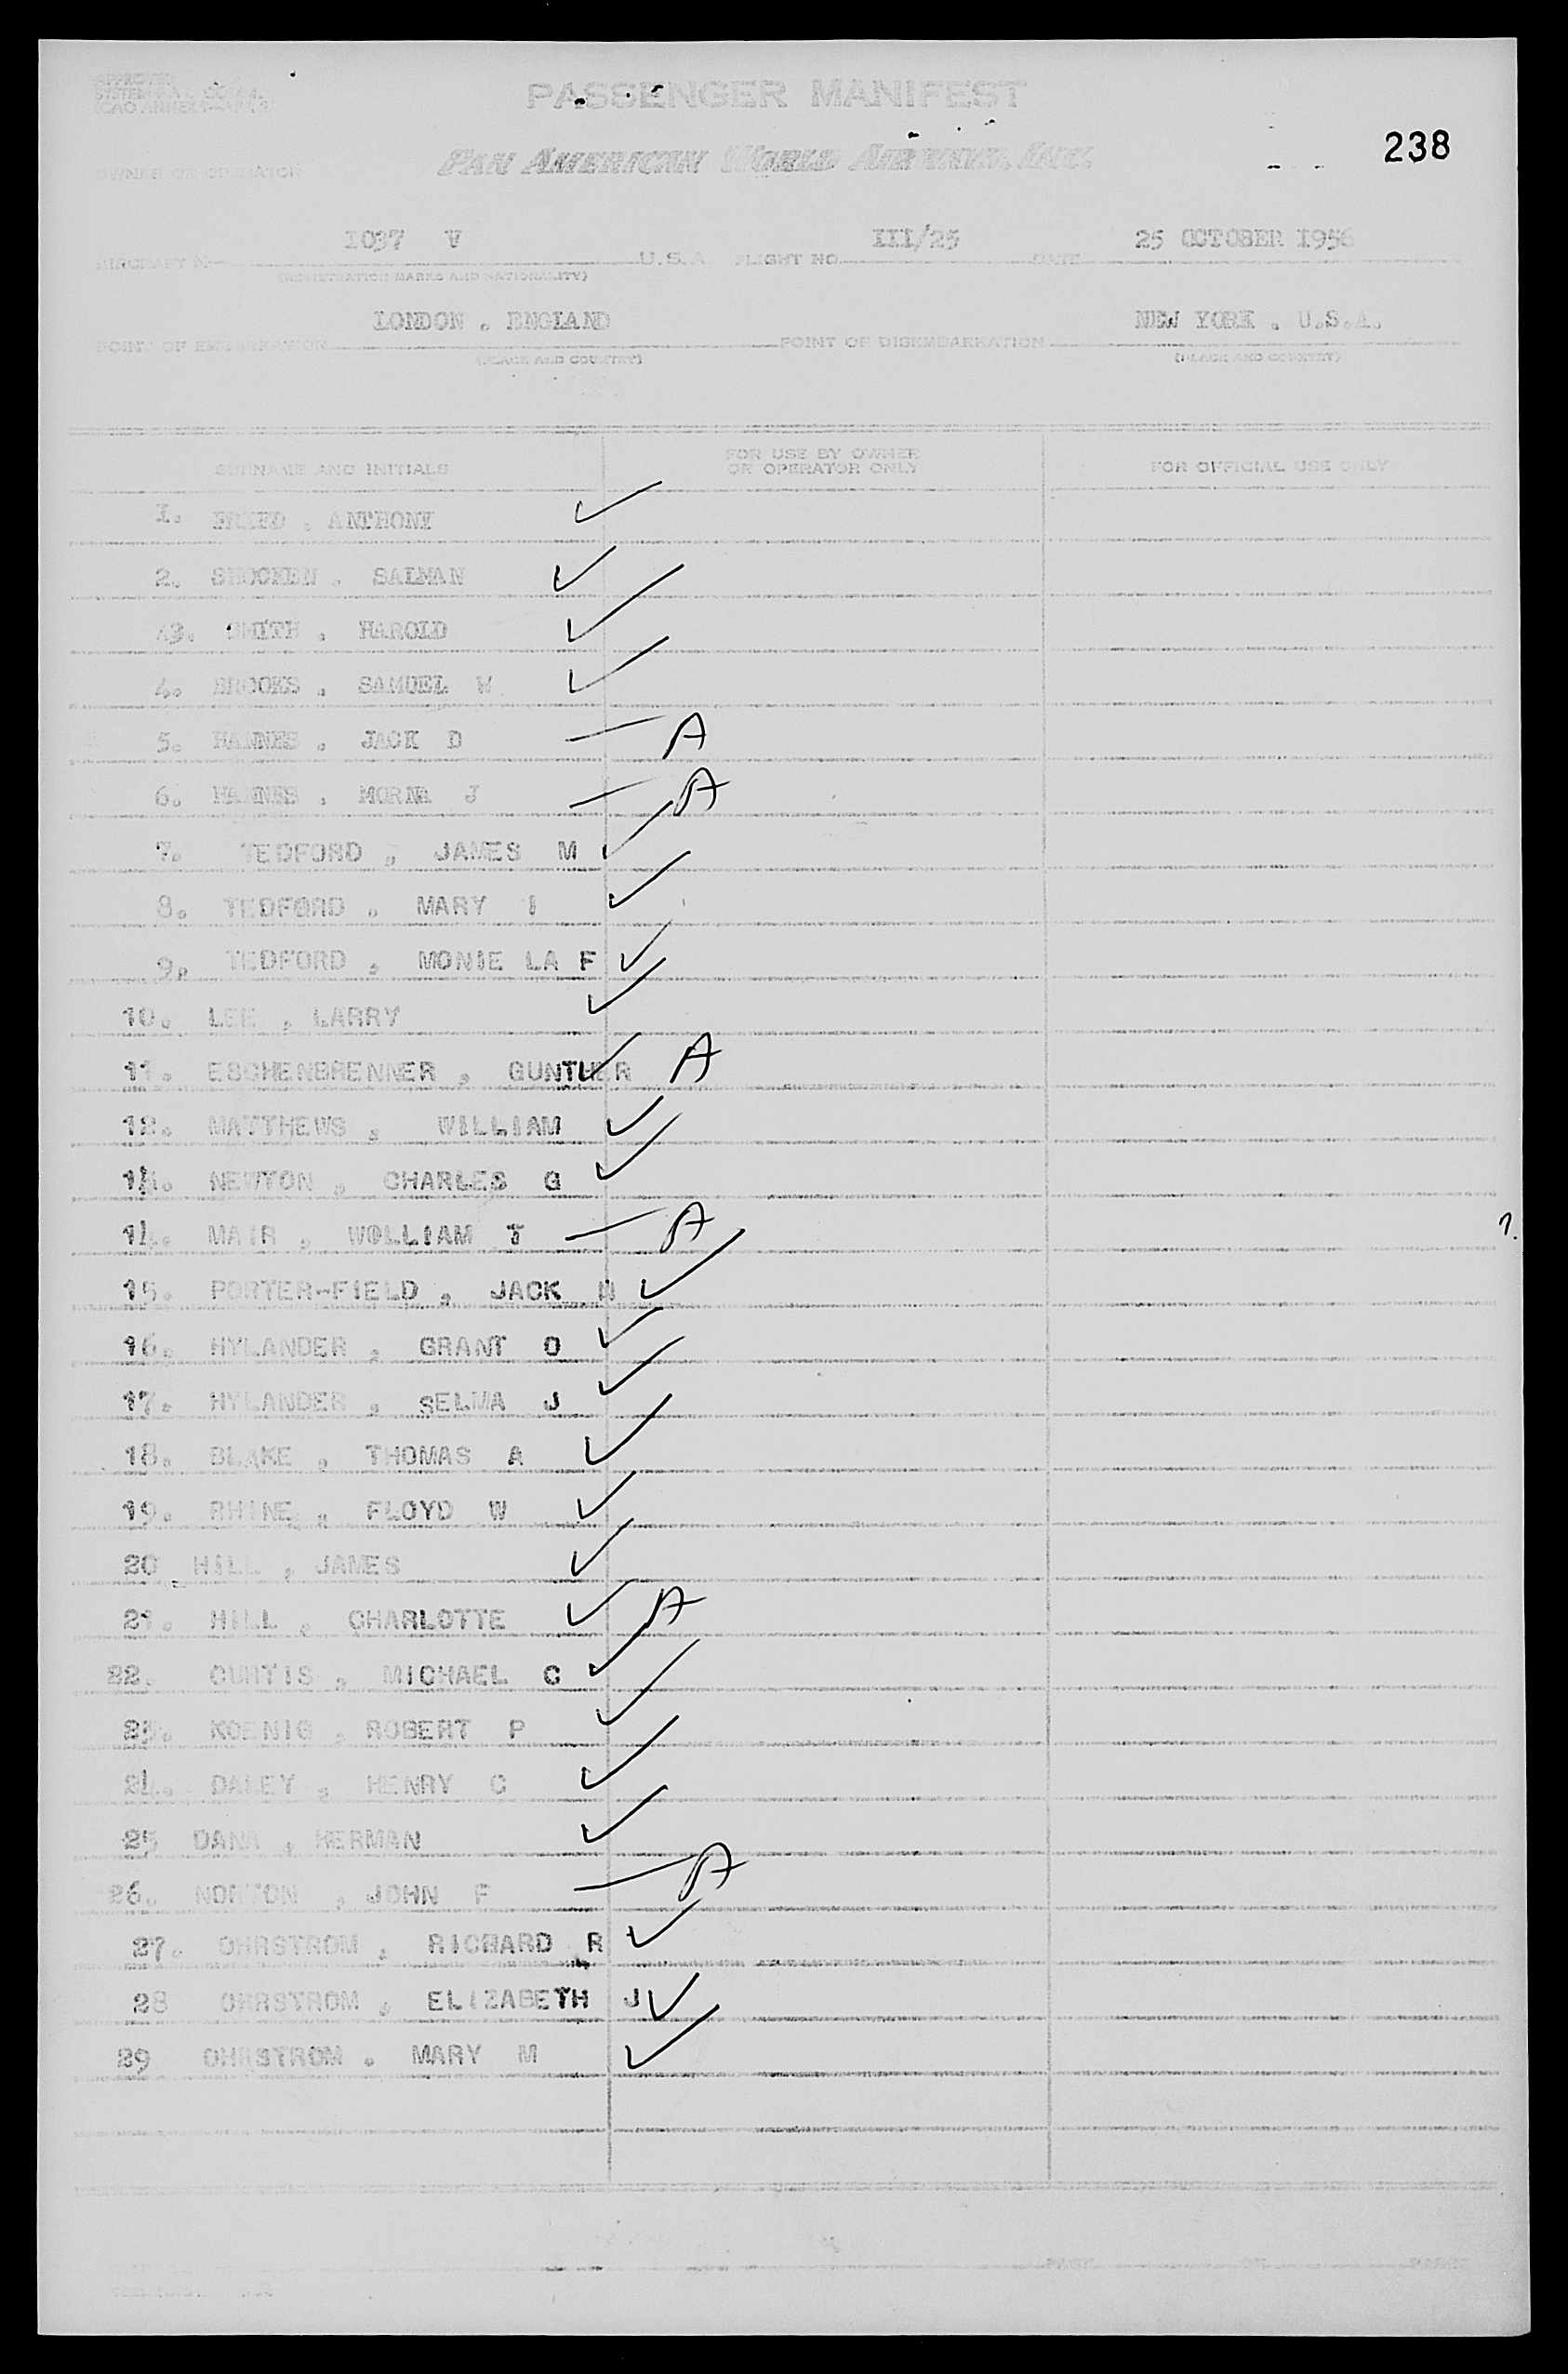 PASSENGER MANIFEST
238
PAN AMERICAN WORLD AIRWAYS, INC.
OWNER OR OPERATOR
1037 V III/25 25 OCTOBER 1956
AIRCRAFT U.S.A. FLIGHT NO. DATE
(REGISTRATION MARKS AND NATIONALITY)
LONDON . ENGLAND NEW YORK . U.S.A.
POINT OF EMBARKATION POINT OF DISEMBARKATION
(PLACE AND COUNTRY) (PLACE AND COUNTRY)
SURNAME AND INITIALS FOR USE BY OWNER OR OPERATOR ONLY FOR OFFICIAL USE ONLY
1. , ANTHONY ✓
2. SHOCKEN . SALMAN ✓
3. SMITH . HAROLD ✓
4. BROOKS . SAMUEL W ✓
5. HANNES . JACK D — A
6. HANNES . MORNA J — A
7. TEDFORD , JAMES M ✓
8. TEDFORD , MARY I ✓
9. TEDFORD , MONIE LA F ✓
10. LEE , LARRY ✓
11. ESCHENBRENNER , GUNTHER ✓ A
12. MATTHEWS , WILLIAM ✓
NEWTON , CHARLES G ✓
14. MAIR , WOLLIAM T — A
15. PORTER-FIELD , JACK ✓
16. HYLANDER , GRANT O ✓
17. HYLANDER , SELMA J ✓
18. BLAKE , THOMAS A ✓
19. RHINE , FLOYD W ✓
20 HILL , JAMES ✓
21. HILL , CHARLOTTE ✓ A
22. CURTIS , MICHAEL C ✓
23. KOENIG , ROBERT P ✓
24. DALEY , HENRY C ✓
25 DANA , HERMAN ✓
26. NORTON , JOHN F — A
27. OHRSTROM , RICHARD R ✓
28 OHRSTROM , ELIZABETH J ✓
29 OHRSTROM . MARY M ✓